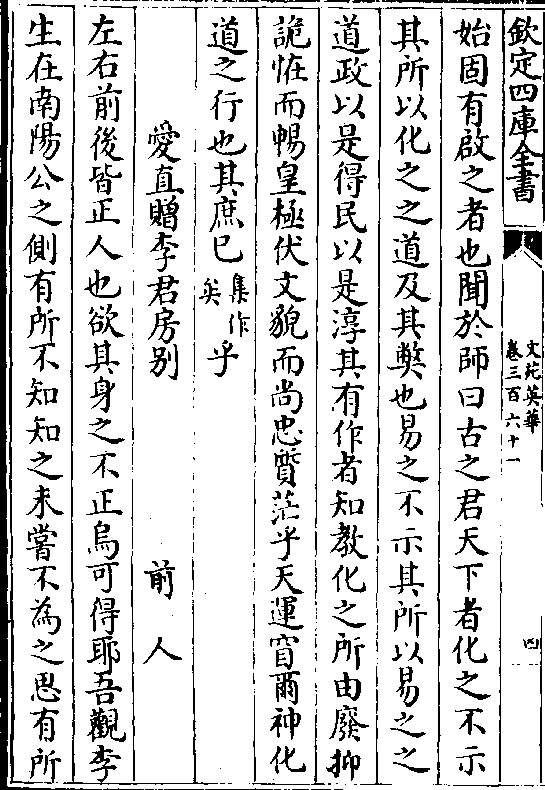 欽定四庫全書
文苑英華
卷三百六十一
四
始固有啟之者也聞於師曰古之君天下者化之不示
其所以化之之道及其弊也易之不示其所以易之之
道政以是得民以是淳其有作者知教化之所由廢抑
詭恠而暢皇極伏文貌而尚忠質茫乎天運窅爾神化
道之行也其庶已集作矣乎
愛直贈李君房别 前人
左右前後皆正人也欲其身之不正烏可得耶吾觀李
生在南陽公之側有所不知知之未嘗不為之思有所